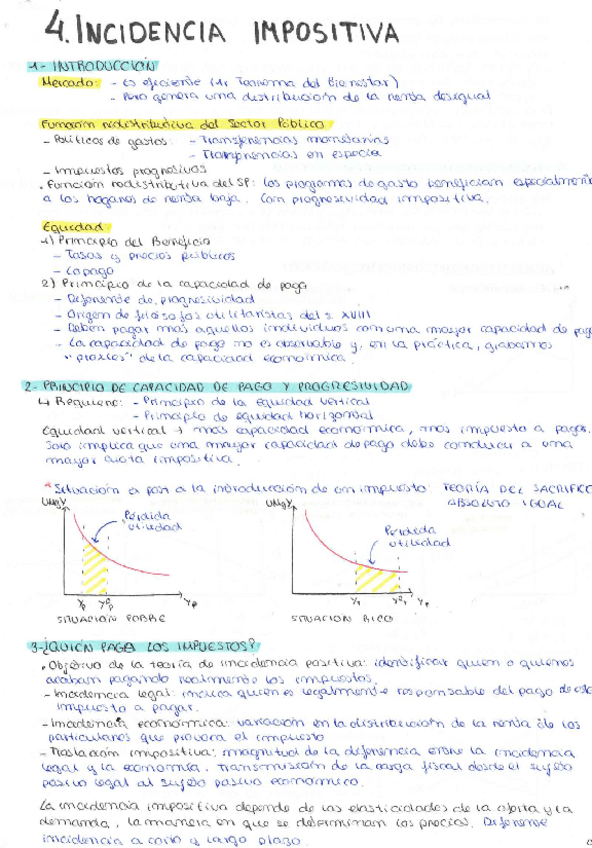 4. INCIDENCIA IMPOSITIVA
1- INTRODUCCIÓN
Mercado: - es eficiente (1r Teorema del Bienestar)
- Pero genera una distribución de la renta desigual
Función redistributiva del Sector Público
- Políticas de gastos: - Transferencias monetarias
- Transferencias en especie
- Impuestos progresivos
. Función redistributiva del SP: los programas de gasto benefician especialmente
a los hogares de renta baja. Con progresividad impositiva.
Equidad
1) Principio del Beneficio
- Tasas y precios públicos
- Copago
2) Principio de la capacidad de pago
- Diferente de progresividad
- Origen de filósofos utilitaristas del s. XVIII
- Deben pagar más aquellos individuos con una mayor capacidad de pago
- La capacidad de pago no es observable y, en la práctica, gravamos
"proxies" de la capacidad económica.
2- PRINCIPIO DE CAPACIDAD DE PAGO Y PROGRESIVIDAD
↳ Requiere: - Principio de la equidad vertical
- Principio de equidad horizontal
Equidad vertical → más capacidad económica, más impuesto a pagar.
Solo implica que una mayor capacidad de pago debe conducir a una
mayor cuota impositiva.
* Situación a post a la introducción de un impuesto: TEORÍA DEL SACRIFICIO
ABSOLUTO IGUAL
UMgY
Pérdida
utilidad
SITUACION POBRE
UMgY
Pérdida
utilidad
SITUACION RICO
3- ¿QUIÉN PAGA LOS IMPUESTOS?
. Objetivo de la teoría de incidencia positiva: identificar quien o quienes
acaban pagando realmente los impuestos.
- Incidencia legal: indica quien es legalmente responsable del pago de este
impuesto a pagar.
- Incidencia económica: variación en la distribución de la renta de los
particulares que provoca el impuesto
- Traslación impositiva: magnitud de la diferencia entre la incidencia
legal y la economía. Transmisión de la carga fiscal desde el sujeto
pasivo legal al sujeto pasivo económico.
La incidencia impositiva depende de las elasticidades de la oferta y la
demanda, la manera en que se determinan los precios. Diferente
incidencia a corto y largo plazo.